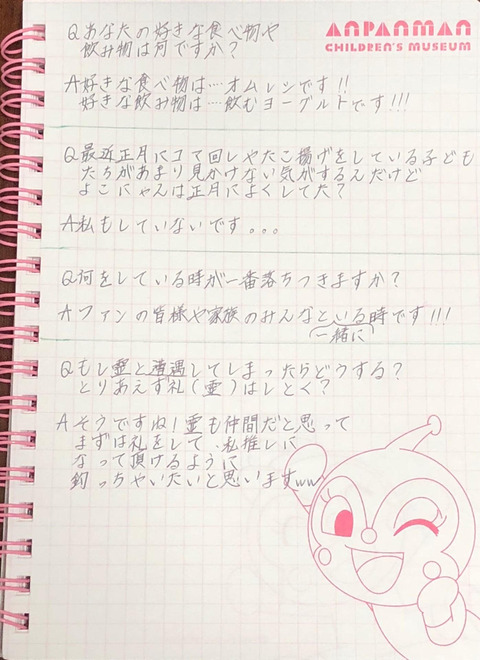 ANPANMAN
CHILDREN'S MUSEUM
Qあなたの好きな食べ物や
飲み物は何ですか?
A好きな食べ物は…オムレツです!!
好きな飲み物は…飲むヨーグルトです!!!
Q最近正月にコマ回しやたこ揚げをしている子ども
たちがあまり見かけない気がするんだけど
よこにゃんは正月によくしてた?
A私もしていないです。。。
Q何をしている時が一番落ちつきますか?
Aファンの皆様や家族のみんなといる時です!!!
一緒に
Qもし霊と遭遇してしまったらどうする?
とりあえず礼(霊)はしとく?
Aそうですね!霊も仲間だと思って
まずは礼をして、私推しに
なって頂けるように
釣っちゃいたいと思いますww